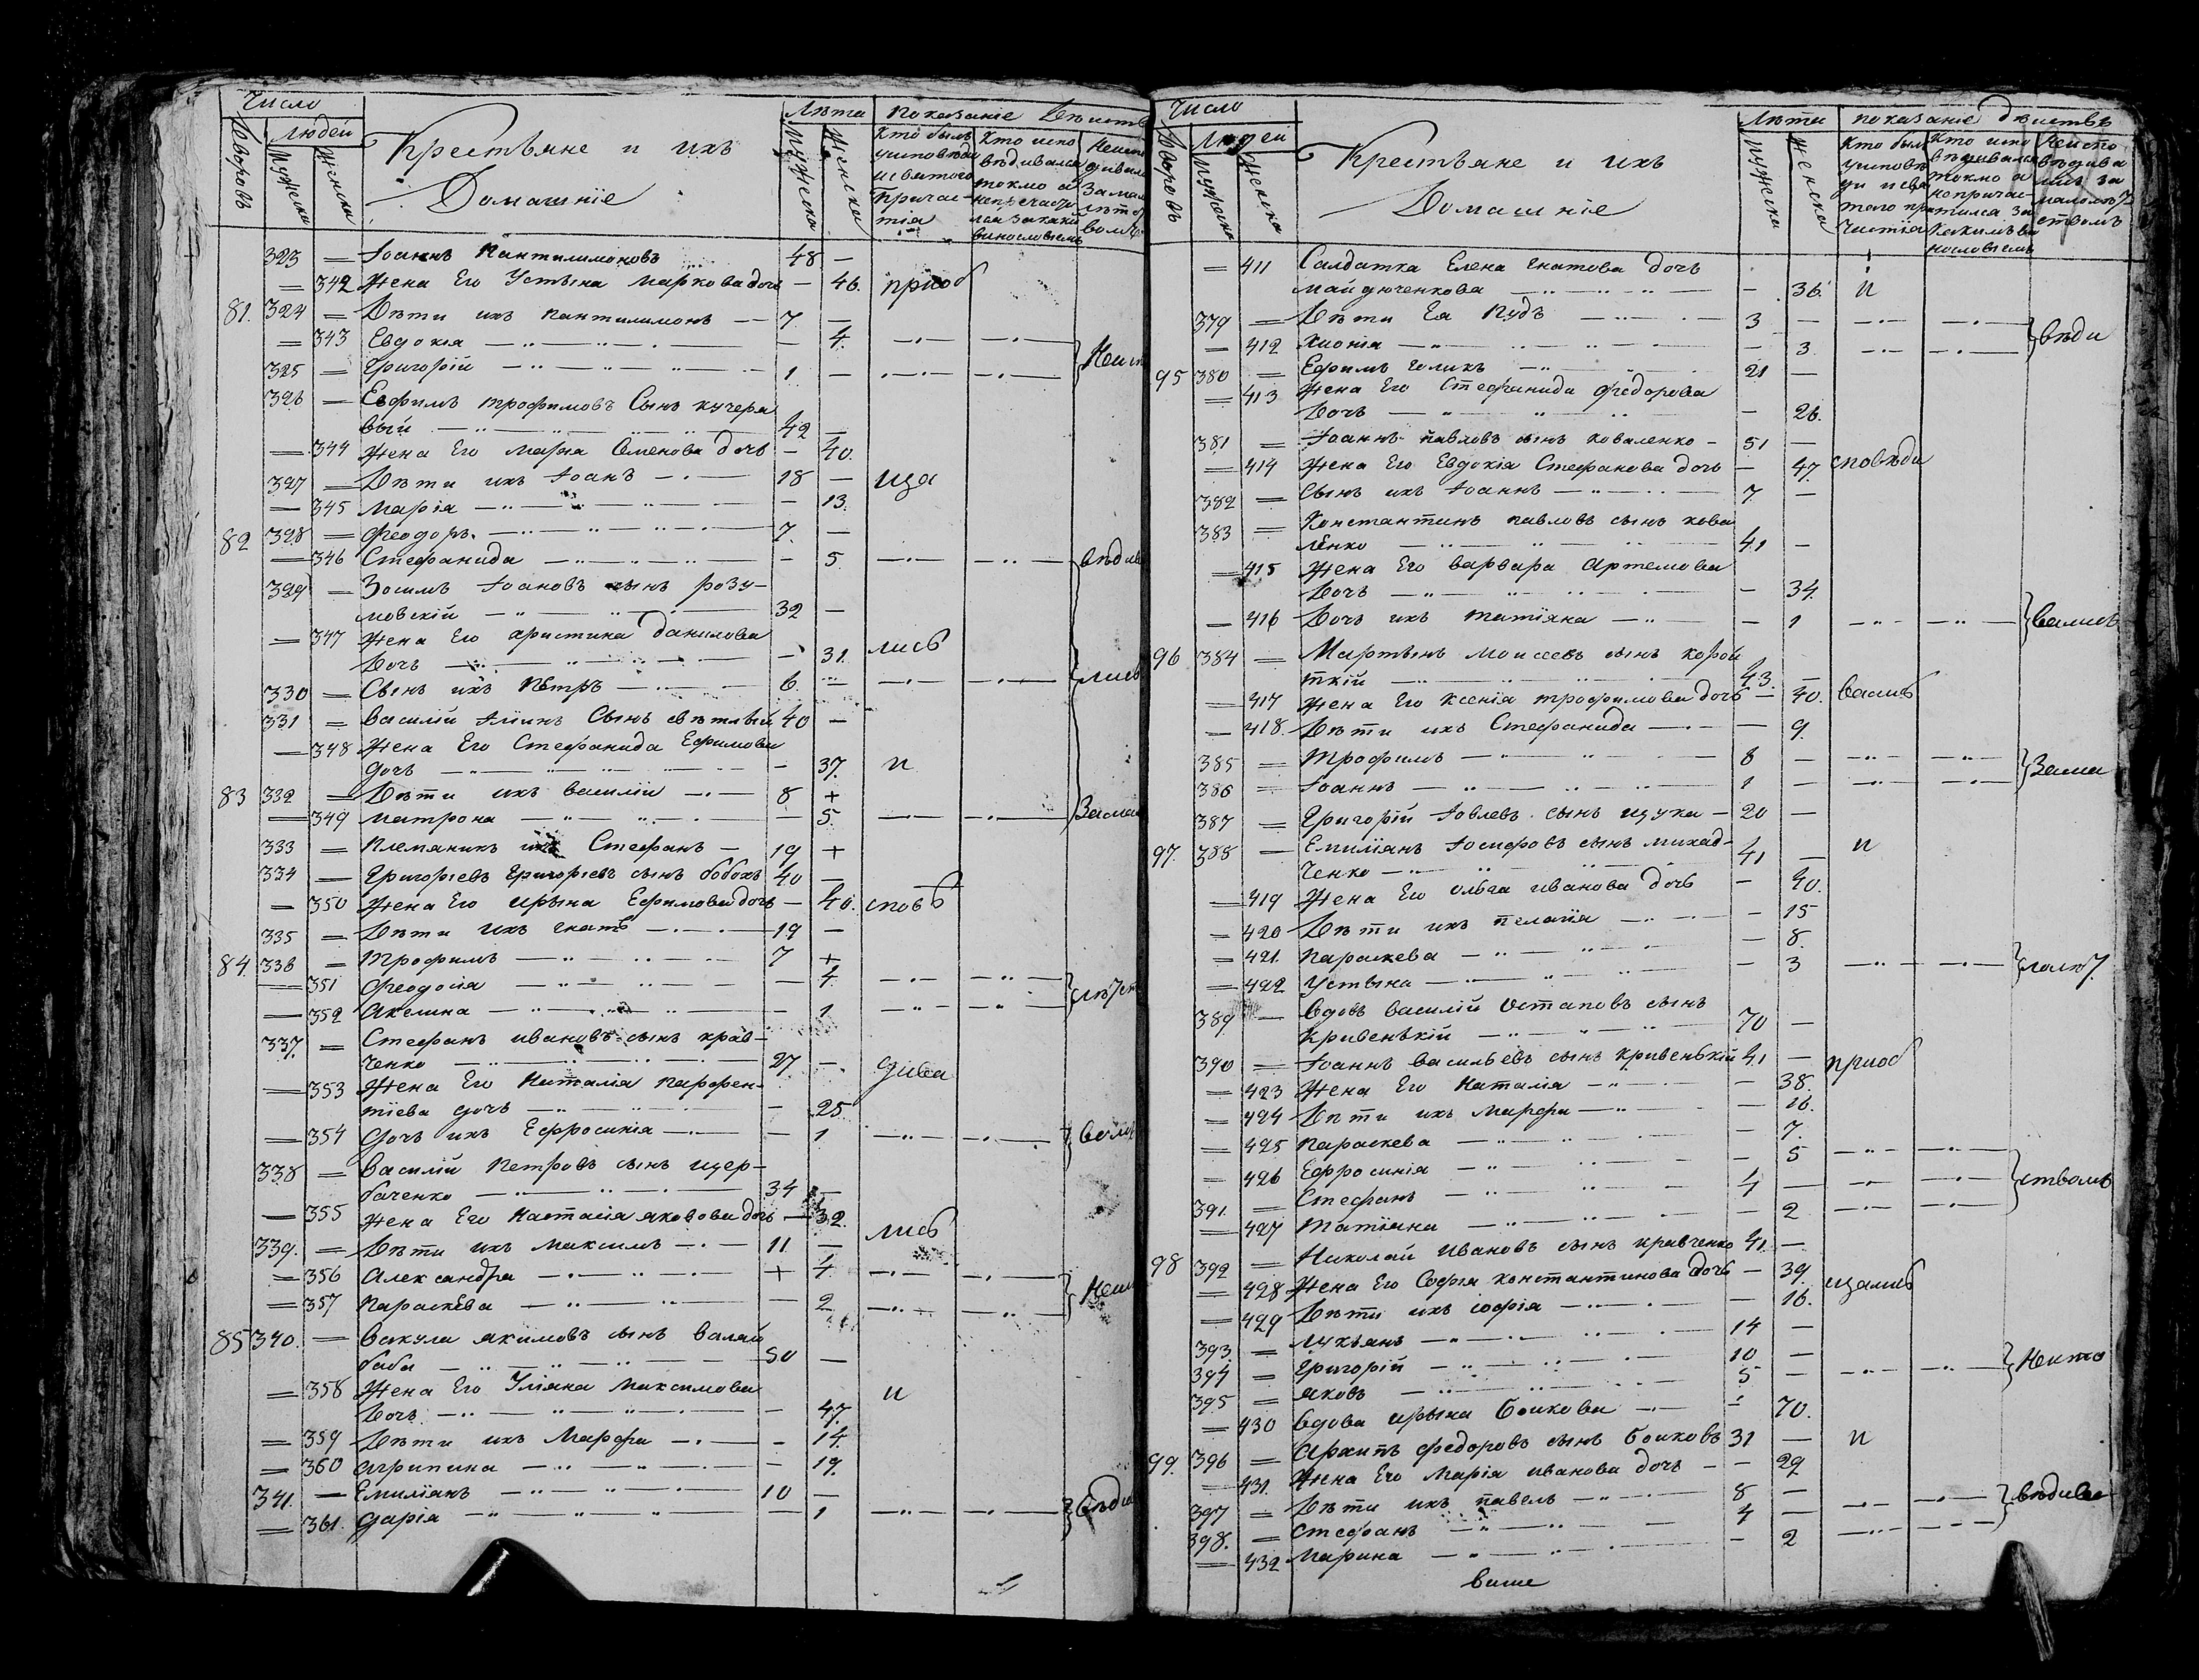 Число
Дворовъ
Людей
Мужеска
Женска
Крестьяне и ихъ
Домашніе
Лѣта
Мужеска
Женска
Показаніе
Кто былъ
323 — Іоаннъ Пантилимоновъ 48 —
— 342 Жена Его Устьина Маркова дочь — 46. приоб
81. 324 — Дѣти ихъ Пантилимонъ — 7 —
— 343 Евдокія — 4.
325 — Григорій — 1 —
326 — Евфимъ Трофимовъ Сынъ кучеря
вый — 42 —
— 344 Жена Его Марѳа Семенова дочь — 40.
327 — Дѣти ихъ Іоанъ — 18 — ща
— 345 Марія — 13.
82 328 — Феодоръ — 7. —
— 346 Стефанида — 5.
329 — Зосимъ Іоановъ сынъ розу-
мовскій — 32 —
— 347 Жена Его Христина Данилова
дочь — 31. лисъ
330 — Сынъ ихъ Петръ — 6. —
331 — Василій сынъ 40 —
— 348 Жена Его Стефанида Ефимова
дочь — 37. и
83 332 — Дѣти ихъ Василій — 8 +
— 349 Матрона — 5.
333 — Племяникъ ихъ Стефанъ — 19 +
334 — Григоріевъ Григоріевъ сынъ бобохъ 40 —
— 350 Жена Его Ирына Ефимова дочь — 40. сповѣ
335 — Дѣти ихъ Гнатъ — 19 —
84 336 — Трофимъ — 7 +
— 351 Феодосія — 4.
— 352 Акелина — 1
337. — Стефанъ ивановъ сынъ крав-
ченко — 27 — дива
— 353 Жена Его Наталія Парфен-
тіева дочь — 25.
— 354 Дочь ихъ Ефросинія — 1
338 — Василій Петровъ сынъ щер-
баченко — 34 —
— 355 Жена Его Настасія яковова дочь — 32. лисъ
339. — Дѣти ихъ Максимъ — 11 —
— 356 Александра — + 4.
— 357 Параскева — 2
85 340. — Вакула якимовъ сынъ валяй
баба — 50 —
— 358 Жена Его Уліяна Максимова и
дочь — 47.
— 359 Дѣти ихъ Марфа — 14.
— 360 агрипина — 19.
341. — Емиліанъ — 10 —
— 361. Дарія — 1
Число
Дворовъ
Людей
Мужеска
Женска
Крестьяне и ихъ
Домашніе
Лѣта
Мужеска
Женска
показаніе дѣиствъ
— 411 Салдатка Елена Гнатова дочь
майдюченкова — 36. и
379 — Дѣти Ея Пудъ — 3 —
— 412 Хионія — 3. вѣди
95 380 — Ефимъ — 21 —
— 413 Жена Его Стефанида Федорова
Дочь — 26.
381 — Іоаннъ павловъ сынъ коваленко — 51 —
— 414 Жена Его Евдокія Стефанова дочь — 47. сповѣди
382 — Сынъ ихъ Іоаннъ — 7. —
383 — Константинъ павловъ сынъ кова
ленко — 41 —
— 415 Жена Его варвара Артемова
Дочь — 34.
— 416 Дочь ихъ Татіяна — 1 вались
96 384 — Мартынъ моисеевъ сынъ корот
ткій — 43. —
— 417 Жена Его ксенія трофимова дочь — 40. вались
— 418. Дѣти ихъ Стефанида — 9.
385 — Трофимъ — 8 — Зама
386 — Іоаннъ — 1 —
387 — Григорій Іовлевъ сынъ щука — 20 —
97. 388 — Емиліянъ Іосифовъ сынъ михад- и
ченко — 41 —
— 419 Жена Его ольга иванова дочь — 40.
— 420 Дѣти ихъ пелагія — 15
— 421. Параскева — 8.
— 422 Устьина — 3 лолѣ
389 — Вдовъ василій Остаповъ сынъ
Кривенькій — 70 —
390 — Іоаннъ васильевъ сынъ кривенькій 41 — приоб
— 423 Жена Его Наталія — 38.
— 424 Дѣти ихъ Марфа — 16.
— 425 Параскева — 7.
— 426 Ефросинія — 5
391. — Стефанъ — 4 — ствомъ
— 427 Татіяна — 2
98 392 — Николай ивановъ сынъ кравченко 41. —
— 428 Жена Его Софія константинова дочь — 39. щались
— 429 Дѣти ихъ софія — 16.
393. — Лукьянъ — 14 —
394 — Григорій — 10 —
395 — яковъ — 5 —
— 430 Вдова ирына боикова — 70.
99. 396 — Архипъ федоровъ сынъ боиковъ 31 — и
— 431. Жена Его Марія иванова дочь — 29
397 — Дѣти ихъ павелъ — 8 —
398. — Стефанъ — 4 —
— 432 Марина — 2
више